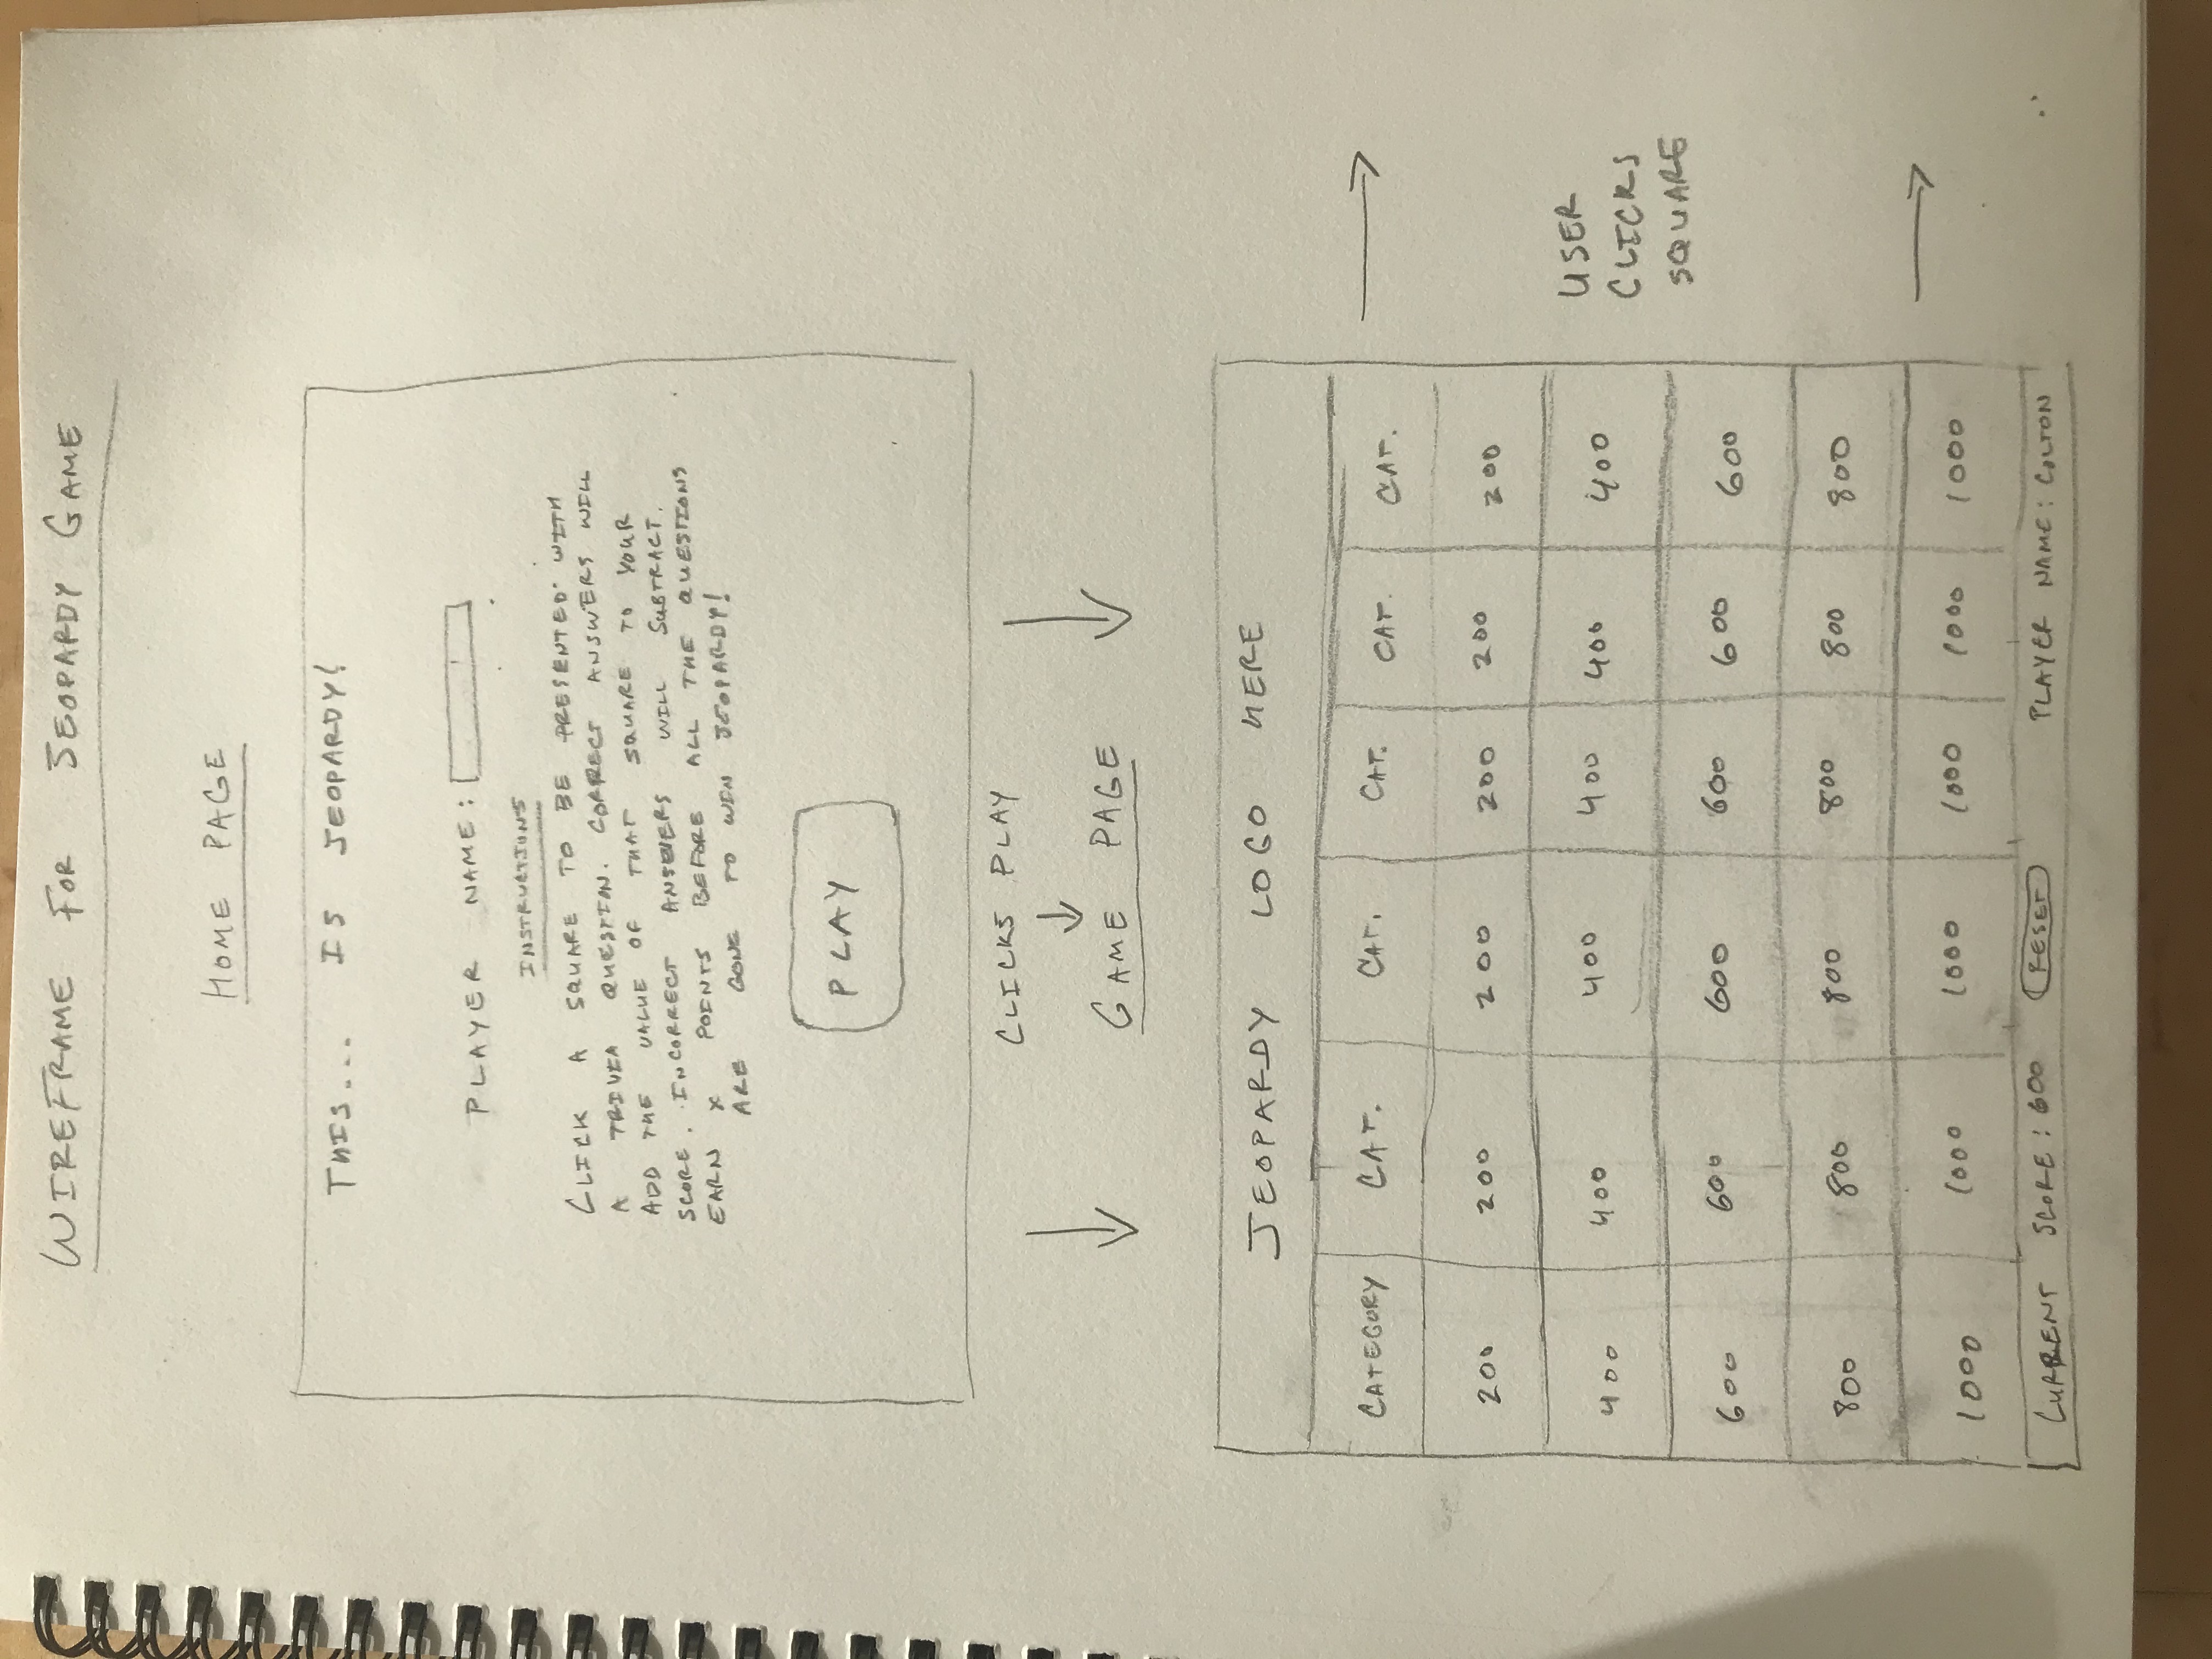 WIREFRAME FOR JEOPARDY GAME
HOME PAGE
THIS... IS JEOPARDY!
PLAYER NAME:
INSTRUCTIONS
CLICK A SQUARE TO BE PRESENTED WITH
A TRIVIA QUESTION. CORRECT ANSWERS WILL
ADD THE VALUE OF THAT SQUARE TO YOUR
SCORE. INCORRECT ANSWERS WILL SUBTRACT.
EARN X POINTS BEFORE ALL THE QUESTIONS
ARE GONE TO WIN JEOPARDY!
PLAY
CLICKS PLAY
GAME PAGE
JEOPARDY LOGO HERE
CATEGORY CAT. CAT. CAT. CAT. CAT.
200 200 200 200 200 200
400 400 400 400 400 400
600 600 600 600 600 600
800 800 800 800 800 800
1000 1000 1000 1000 1000 1000
CURRENT SCORE: 600 RESET PLAYER NAME: COLTON
USER
CLICKS
SQUARE